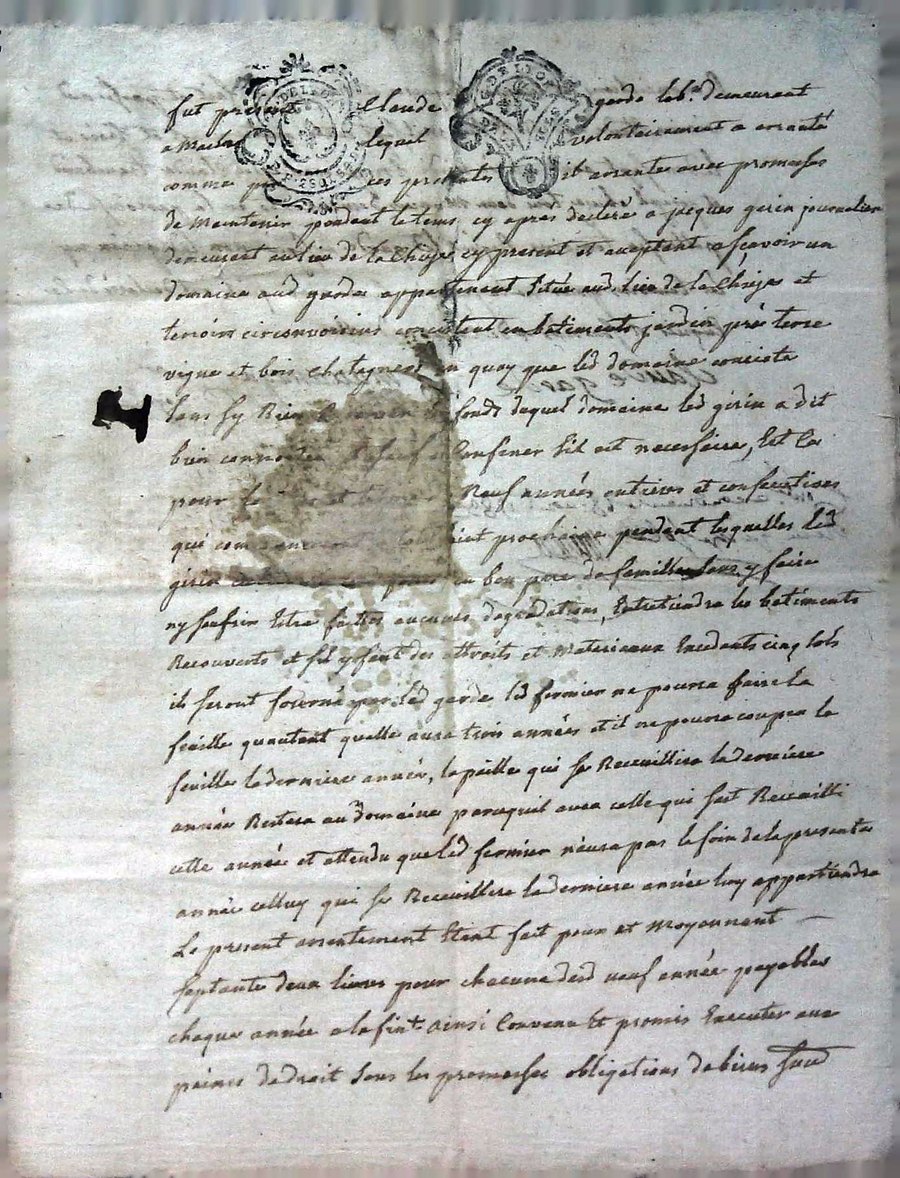 fut présent Claude garde lab.r demeurant
a lequel volontairement a arranté
comme par ces présentes et arrante avec promesses
de Maintenir pendant le tems cy apres declaré a jacques girin journalier
demeurant au lieu de la Chize cy present et acceptant asçavoir un
domaine aud garde appartenant Situé aud. lieu de la Chize et
teroirs circonvoisins concistent en batiments jardin pré terre
vigne et bois Chatagners en quoy que led domaine conciste
Sans sy Rien fonds duquel domaine led girin a dit
bien connoitre Confiner S'il est necessaire, Et ce
pour Neuf années entieres et consecutives
qui prochaine pendant lesquelles led
girin bon pere de famille sans y faire
ny soufrir Etre faittes aucunes degradations, Entretiendra les batiments
Recouverts et s'il y faut des attraits et Materiaux Excedants cinq sols
il seront fournis par led garde led fermier ne pourra faire la
feuille quautant quelle aura trois années et il ne pourra couper la
feuille la derniere année, la paille qui se Recueillira la derniere
année Restera au domaine parcequil aura celle qui sest Recueilli
cette année et attendu que led fermier n'aura pas le foin de la presente
année celluy qui se Receuillira la derniere année luy appartiendra
Le present arrentement Etant fait pour et moyennant
septante deux livres pour chacune desd neuf année payables
chaque année a la fin. Ainsi Convenu Et promis Executer aux
peines de droit Sous les promesses obligations de biens